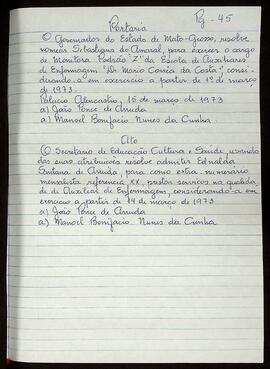 Pg - 45
Portaria
O Governador do Estado de Mato-Grosso, resolve
nomear Sebastiana do Amaral, para exercer o cargo
de Monitora Padrão "Z" da Escola de Auxiliares
de Enfermagem "Dr Mario Corrêa da Costa", consi-
derando-a em exercício a partir de 1º de março
de 1973.
Palacio Alencastro, 15 de março de 1973
a) João Ponce de Arruda
a) Manoel Bonifacio Nunes da Cunha
Ato
O Secretario de Educação Cultura e Saúde, usando
das suas atribuições resolve admitir Ednalda
Santana de Arruda, para como extra-numerário
mensalista referência XX, prestar serviços na qualida
de de Auxiliar de Enfermagem, considerando-a em
exercício a partir de 14 de março de 1973
a) João Ponce de Arruda
a) Manoel Bonifacio Nunes da Cunha